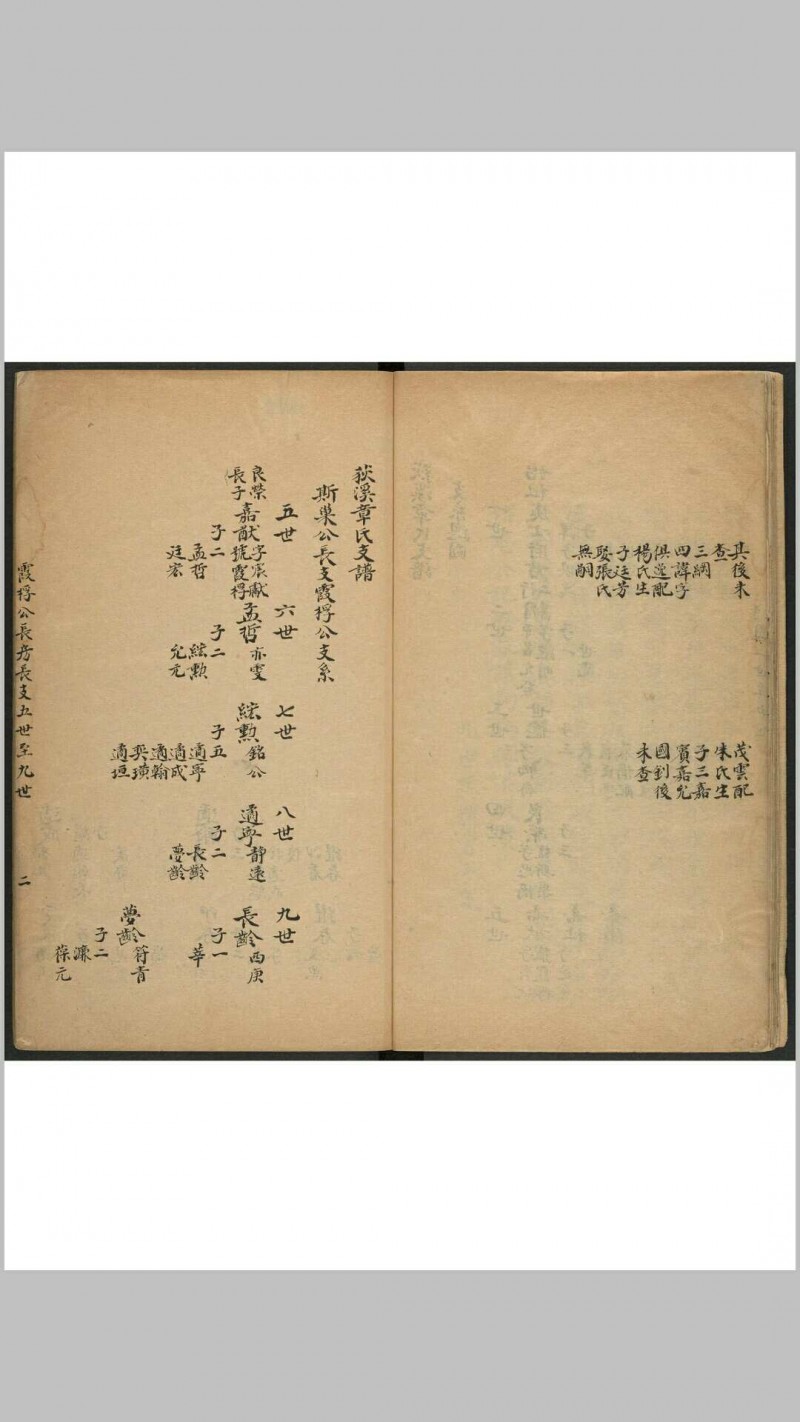 其後未
查
三綱
四諱字
俱逸配
楊氏生
子廷芳
娶張氏
無嗣
茂雲配
朱氏生
子三嘉
賓嘉允
國釗後
未查
荻溪章氏支譜
斯巢公長支霞桴公支系
五世
良榮
長子
嘉猷
字宸獻
號霞桴
子二
孟哲
廷宏
六世
孟哲
亦雯
子二
綋勲
允元
七世
綋勲
銘公
子五
適寧
適成
適翰
奕璜
適垣
八世
適寧
靜遠
子二
長齡
夢齡
九世
長齡
西庚
子一
華
夢齡
符青
子二
濂
葆元
霞桴公長房長支五世至九世
二